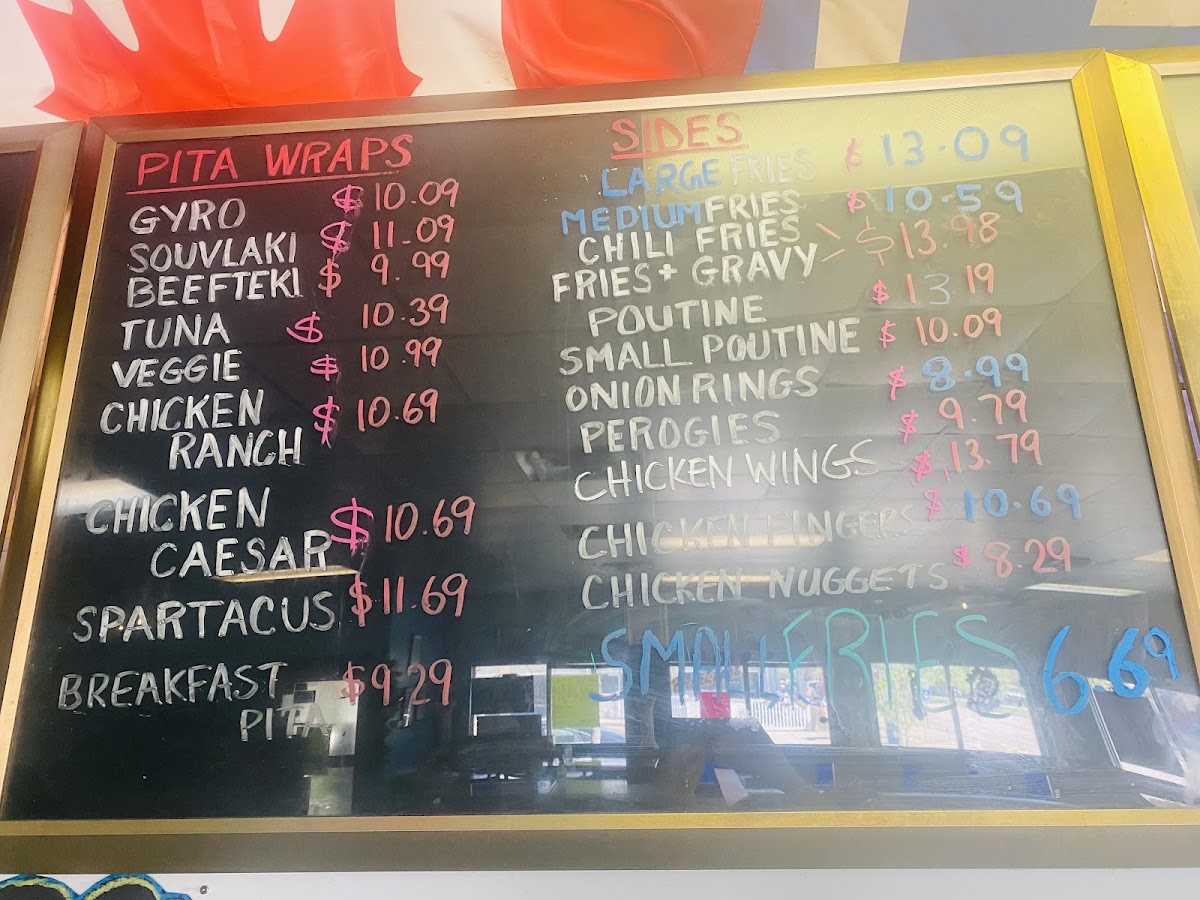 PITA WRAPS
GYRO $ 10.09
SOUVLAKI $ 11.09
BEEFTEKI $ 9.99
TUNA $ 10.39
VEGGIE $ 10.99
CHICKEN
RANCH $ 10.69
CHICKEN
CAESAR $ 10.69
SPARTACUS $ 11.69
BREAKFAST $ 9.29
PITA
SIDES
LARGE FRIES $ 13.09
MEDIUM FRIES $ 10.59
CHILI FRIES
FRIES + GRAVY > $ 13.98
POUTINE $ 13.19
SMALL POUTINE $ 10.09
ONION RINGS $ 8.99
PEROGIES $ 9.79
CHICKEN WINGS $ 13.79
CHICKEN FINGERS $ 10.69
CHICKEN NUGGETS $ 8.29
SMALL FRIES 6.69